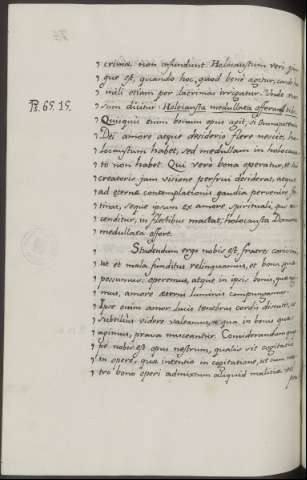 crimæ, non infundunt. Holocaustum verò pin
gue est, quando hoc, quod benè agitur, cordis hu
mili etiam per lacrimas irrigatur. Unde rur
sum dicitur: Holocausta medullata offeram tibi.
Ps. 65. 15.
Quisquis enim bonum opus agit, si Omnipotentis
Dei amore atque desiderio flere nescit, ho
locaustum habet, sed medullam in holocaus
to non habet. Qui verò bona operatur, et di
creatoris jam visione perfrui desiderat, atque
ad æternæ contemplationis gaudia pervenire fes
tinat, seque ipsum ex amore spirituali, quo ac
cenditur, in fletibus mactat, holocausta Domino
medullata offert.
Studendum ergo nobis est, fratres carissimi,
ut et mala funditus relinquamus, et bona quæ
possumus, operemur, atque in ipsis bonis, quæ agi
mus, amore æterni luminis compungamur.
Ipse enim amor lucis tenebras cordis discutit, ut
subtilius videre valeamus, quæ in bonis quæ
agimus, prava misceantur. Considerandum quip
pe nobis est opus nostrum, qualis vis cogitatio
in opere, quæ intentio in cogitatione, ut cum nos
tro bono operi admixtum aliquid malitiæ vi